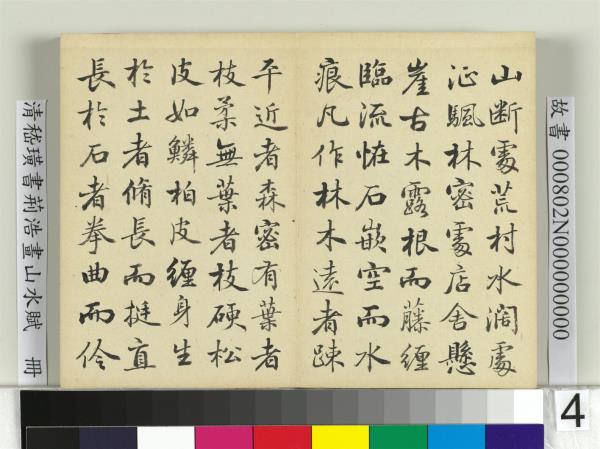 故書 000802N000000000
山断處荒村水濶處
征颿林密處店舍懸
崖古木露根而藤纏
臨流恠石嵌空而水
痕凡作林木遠者踈
平近者森密有葉者
枝柔無葉者枝硬松
皮如鱗柏皮纏身生
於土者脩長而挺直
長於石者拳曲而伶
清嵇璜書荊浩畫山水賦 冊
4